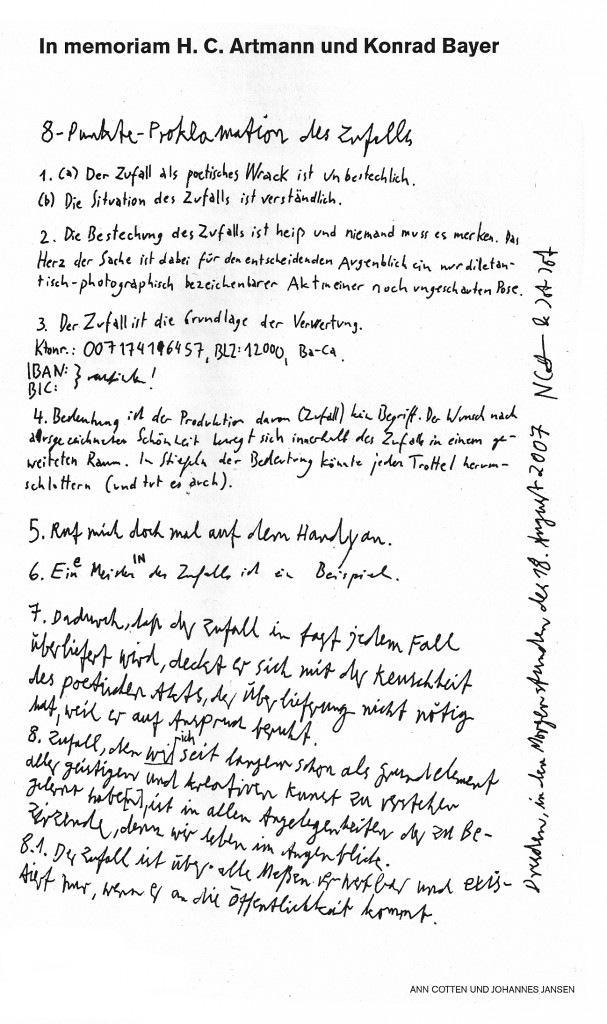 In memoriam H. C. Artmann und Konrad Bayer
8-Punkte-Proklamation des Zufalls
1. (a) Der Zufall als poetisches Wrack ist unbestechlich.
(b) Die Situation des Zufalls ist verständlich.
2. Die Bestechung des Zufalls ist heiß und niemand muss es merken. Das
Herz der Sache ist dabei für den entscheidenden Augenblick ein nur diletan-
tisch-photographisch bezeichenbarer Akt meiner noch ungeschauten Pose.
3. Der Zufall ist die Grundlage der Verwertung.
Ktonr.: 007174196457, BLZ: 12000, Ba-Ca.
IBAN: }
BIC: }
4. Bedeutung ist der Produktion davon (Zufall) kein Begriff. Der Wunsch nach
ausgezeichneter Schönheit bewegt sich innerhalb des Zufalls in einem ge-
weiteten Raum. In Stiefeln der Bedeutung könnte jeder Trottel herum-
schlottern (und tut es auch).
5. Ruf mich doch mal auf dem Handy an.
6. Eine MeisterIN des Zufalls ist ein Beispiel.
7. Dadurch, daß der Zufall in fast jedem Fall
überliefert wird, deckt er sich mit der Keuschheit
des poetischen Akts, der Überlieferung nicht nötig
hat, weil er auf Anspruch beruht.
8. Zufall, den wir/ich seit langem schon als Grundelement
aller geistigen und kreativen Kunst zu verstehen
gelernt habe[n], ist in allen Angelegenheiten der zu Be-
zirzende, denn wir leben im Augenblick.
8.1. Der Zufall ist über alle Maßen verwertbar und exis-
tiert nur, wenn er an die Öffentlichkeit kommt.
Dresden, in den Morgenstunden des 18. August 2007
ANN COTTEN UND JOHANNES JANSEN